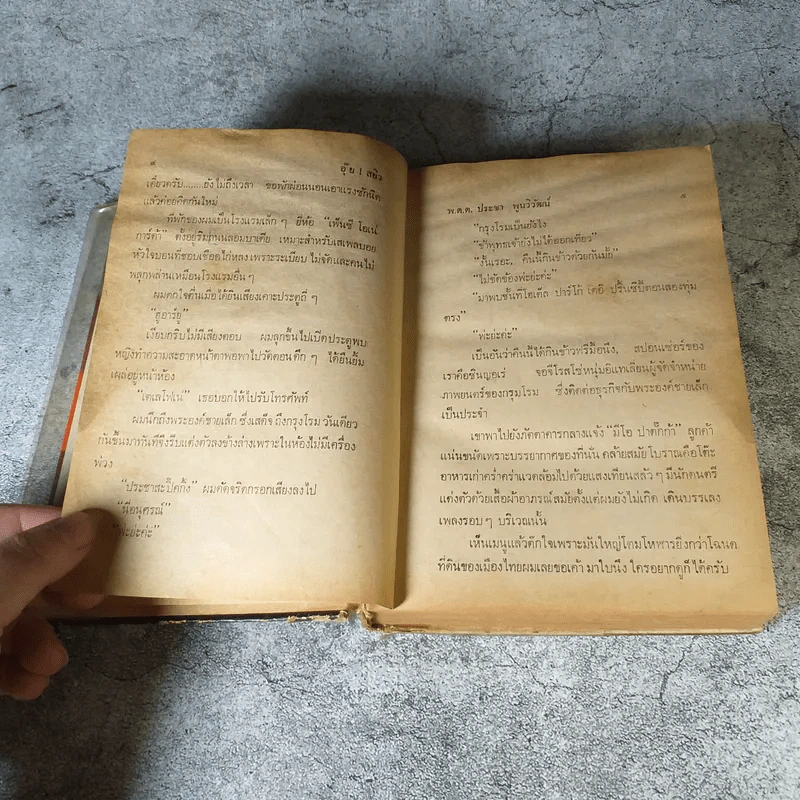 ๔
อุ๊ย ! สยิว
เดี๋ยวครับ........ยังไม่ถึงเวลา ขอพักผ่อนนอนเอาแรงซักนิด
แล้วค่อยคิดกันใหม่
ที่พักของผมเป็นโรงแรมเล็ก ๆ ยี่ห้อ “เพ็นชี โอเน่
การ์ด้า” ตั้งอยู่ริมถนนลอมบาเดีย เหมาะสำหรับเสเพลบอย
หัวใจบอนที่ชอบเชือดไก่หลง เพราะระเบียบไม่จัดและคนไม่
พลุกพล่านเหมือนโรงแรมอื่น ๆ
ผมตกใจตื่นเมื่อได้ยินเสียงเคาะประตูถี่ ๆ
“ฮูอาร์ยู”
เงียบกริบไม่มีเสียงตอบ ผมลุกขึ้นไปเปิดประตูพบ
หญิงทำความสะอาดหน้าตาพอพาไปวัดตอนดึก ๆ ได้ยืนยิ้ม
เผล่อยู่หน้าห้อง
“เตเลโฟเน่” เธอบอกให้ไปรับโทรศัพท์
ผมนึกถึงพระองค์ชายเล็ก ซึ่งเสด็จถึงกรุงโรม วันเดียว
กันขึ้นมาทันทีจึงรีบแต่งตัวลงข้างล่างเพราะในห้องไม่มีเครื่อง
พ่วง
“ประชาสะปิคกิ้ง” ผมดัดจริตกรอกเสียงลงไป
“นี่อนุศรณ์”
“พ่ะย่ะค่ะ”
พ.ต.ต. ประชา พูนวิวัฒน์
๕
“กรุงโรมเป็นยังไง
“ข้าพุทธเจ้ายังไม่ได้ออกเที่ยว”
“งั้นเรอะ, คืนนี้กินข้าวด้วยกันมั้ย”
“ไม่ขัดข้องพ่ะย่ะค่ะ”
“มาพบฉันที่โฮเต็ล ปาร์โก้ เดอิ ปรินซีปี้ตอนสองทุ่ม
ตรง”
“พ่ะย่ะค่ะ”
เป็นอันว่าคืนนี้ได้กินข้าวฟรีมื้อนึง, สปอนเซ่อร์ของ
เราคือซินญอเร่ จอจีโรสโซ่หนุ่มอิแทเลี่ยนผู้จัดจำหน่าย
ภาพยนตร์ของกรุงโรม ซึ่งติดต่อธุรกิจกับพระองค์ชายเล็ก
เป็นประจำ
เขาพาไปยังภัตตาคารกลางแจ้ง “มีโอ ปาตั๊กก้า” ลูกค้า
แน่นขนัดเพราะบรรยากาศของที่นั่น คล้ายสมัยโบราณคือโต๊ะ
อาหารเก่าคร่ำคร่าแวดล้อมไปด้วยแสงเทียนสลัว ๆ มีนักดนตรี
แต่งตัวด้วยเสื้อผ้าอาภรณ์สมัยตั้งแต่ผมยังไม่เกิด เดินบรรเลง
เพลงรอบ ๆ บริเวณนั้น
เห็นเมนูแล้วตกใจเพราะมันใหญ่โตมโหฬารยิ่งกว่าโฉนด
ที่ดินของเมืองไทยผมเลยขอเค้า มาใบนึง ใครอยากดูก็ได้ครับ